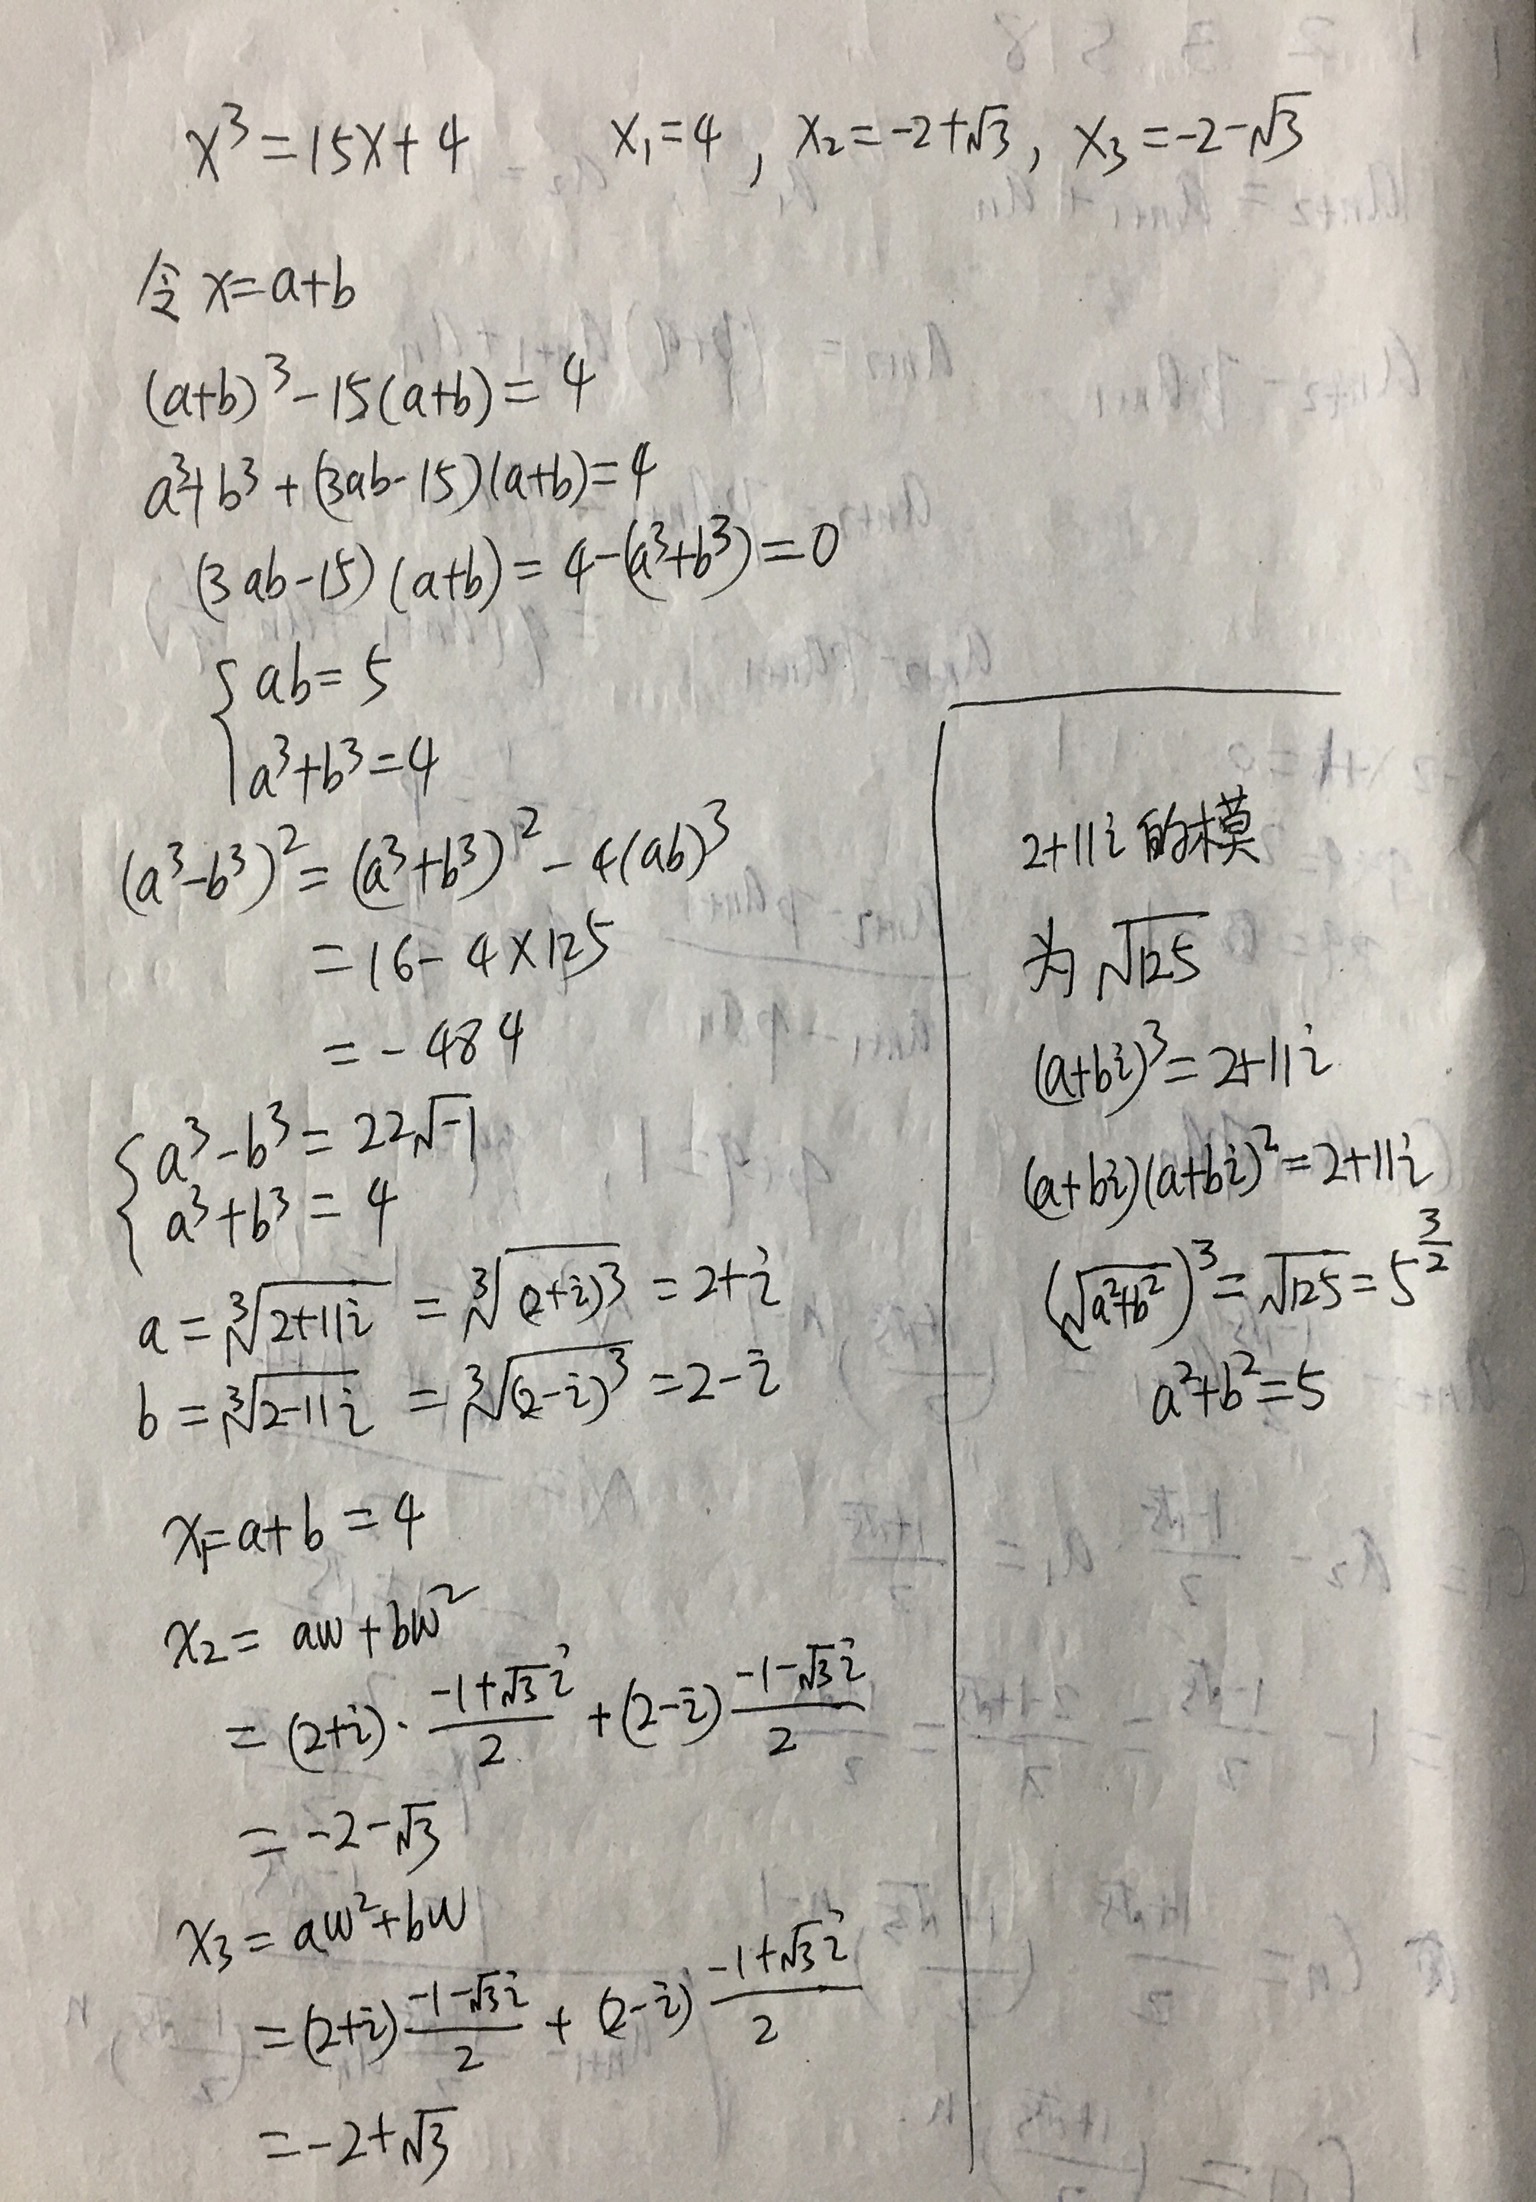 x³=15x+4   x₁=4, x₂=-2+√3, x₃=-2-√3
令 x=a+b
(a+b)³-15(a+b)=4
a³+b³+(3ab-15)(a+b)=4
(3ab-15)(a+b)=4-(a³+b³)=0
{ab=5
a³+b³=4
(a³-b³)²=(a³+b³)²-4(ab)³
=16-4×125
=-484
{a³-b³=22√-1
a³+b³=4
a=∛(2+11i)=∛((2+i)³)=2+i
b=∛(2-11i)=∛((2-i)³)=2-i
x₁=a+b=4
x₂=aw+bw²
=(2+i)·(-1+√3i)/2+(2-i)(-1-√3i)/2
=-2-√3
x₃=aw²+bw
=(2+i)(-1-√3i)/2+(2-i)(-1+√3i)/2
=-2+√3
2+11i的模
为√125
(a+bi)³=2+11i
(a+bi)(a+bi)²=2+11i
(√(a²+b²))³=√125=5^(3/2)
a²+b²=5